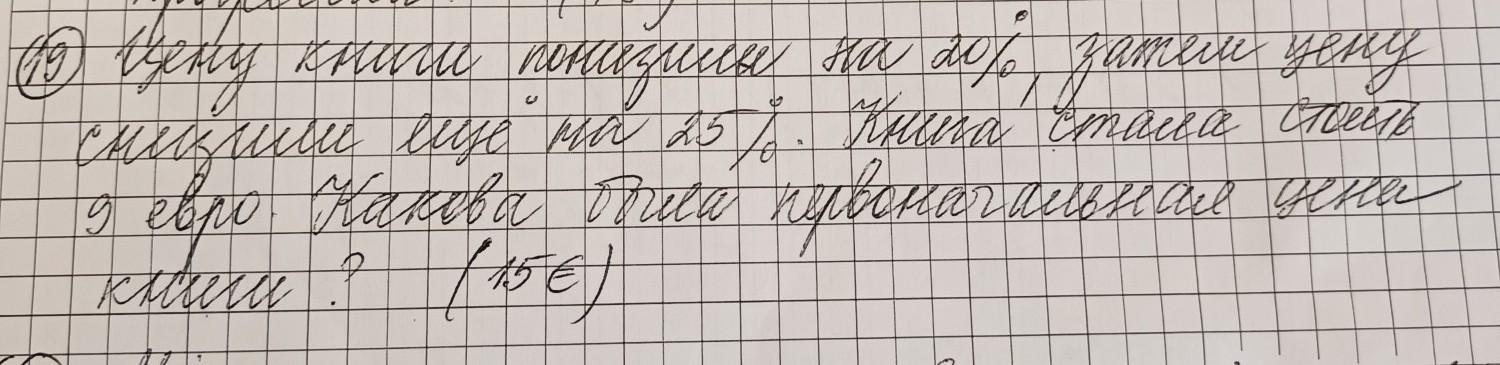 19 Цену книги понизили на 20%, затем цену
снизили ещё на 25%. Книга стала стоить
9 евро. Какова была первоначальная цена
книги? (15€)